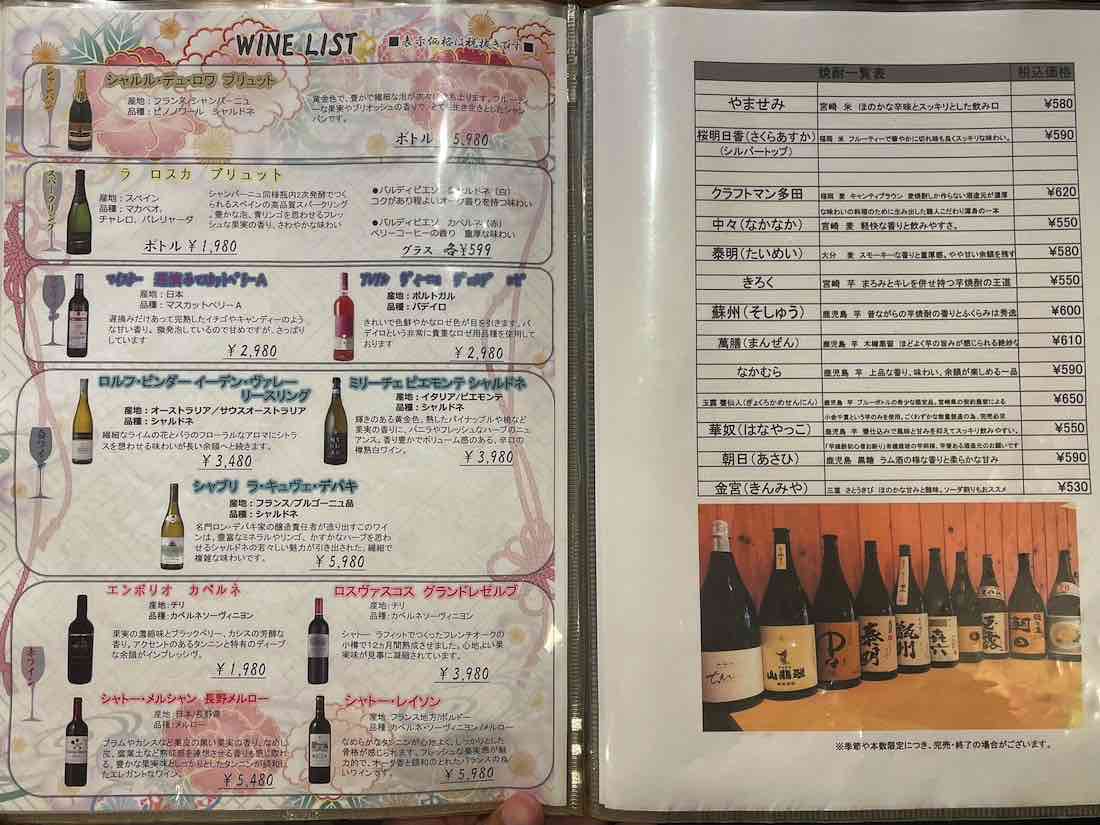 WINE LIST
■表示価格は税抜きです■
シャンパン
シャルル・デュ・ロワ ブリュット
産地：フランス/シャンパーニュ
品種：ピノノワール シャルドネ
ボトル 5,980
スパークリング
ラ ロスカ ブリュット
産地：スペイン
品種：マカベオ、
チャレロ、パレリャーダ
シャンパーニュ同様瓶内2次発酵でつく
られるスペインの高品質スパークリング
。豊かな泡、青リンゴを思わせるフレッ
シュな果実の香り、さわやかな味わい
ボトル ¥1,980
●バルディビエソ シャルドネ（白）
コクがあり程よいオーク香りを持つ味わい
●バルディビエソ カベルネ（赤）
ベリーコーヒーの香り 重厚な味わい
グラス 各¥599
産地：日本
品種：マスカットベリーA
遅摘みだけあって完熟したイチゴやキャンディーのよう
な甘い香り。微発泡しているので甘めですが、さっぱり
しています
¥2,980
産地：ポルトガル
品種：パデイロ
きれいで色鮮やかなロゼ色が目を引きます。パ
デイロという非常に貴重なロゼ用品種を使用して
おります
¥2,980
白ワイン
ロルフ・ビンダー イーデン・ヴァレー
リースリング
産地：オーストラリア/サウスオーストラリア
品種：シャルドネ
繊細なライムの花とバラのフローラルなアロマにシトラ
スを想わせる味わいが長い余韻へと続きます。
¥3,480
ミリーチェ ピエモンテ シャルドネ
産地：イタリア/ピエモンテ
品種：シャルドネ
輝きのある黄金色。熟したパイナップルや桃など
果実の香りに、バニラやフレッシュなハーブのニュ
アンス。香り豊かでボリューム感のある、辛口の
樽熟白ワイン。
¥3,980
シャブリ ラ・キュヴェ・デパキ
産地：フランス/ブルゴーニュ品
品種：シャルドネ
名門ロン・デパキ家の醸造責任者が造り出すこのワイ
ンは、豊富なミネラルやリンゴ、かすかなハーブを思わ
せるシャルドネの若々しい魅力が引き出された、繊細で
複雑な味わいです。
¥5,980
赤ワイン
エンポリオ カベルネ
産地：チリ
品種：カベルネソーヴィニヨン
果実の濃縮味とブラックベリー、カシスの芳醇な
香り。アクセントのあるタンニンと特有のディープ
な余韻がインプレッシヴ。
¥1,980
ロスヴァスコス グランドレゼルブ
産地：チリ
品種：カベルネソーヴィニヨン
シャトー ラフィットでつくったフレンチオークの
小樽で12ヵ月間熟成させました。心地よい果
実味が見事に凝縮されています。
¥3,980
シャトー・メルシャン 長野メルロー
産地：日本/長野県
品種：メルロー
¥5,480
シャトー・レイソン
産地：フランス地方/ボルドー
品種：カベルネ・ソーヴィニヨン/メルロー
なめらかなタンニンが心地よく、しっかりとした
骨格が感じられます。フレッシュな果実感が魅
力的で、オーク香と調和のとれたバランスの良
いワインです。
¥5,980
焼酎一覧表 税込価格
やませみ 宮崎 米 ほのかな辛味とスッキリとした飲み口 ¥580
桜明日香(さくらあすか) 福岡 米 フルーティーで華やかに切れ味も良くスッキリな味わい。 ¥590
(シルバートップ)
クラフトマン多田 福岡 麦 キャンティブラウン 麦焼酎しか作らない酒造元が濃厚 ¥620
な味わいの料理のために生み出した職人こだわり渾身の一本
中々(なかなか) 宮崎 麦 軽快な香りと飲みやすさ。 ¥550
泰明(たいめい) 大分 麦 スモーキーな香りと重厚感。やや甘い余韻を残す ¥580
きろく 宮崎 芋 まろみとキレを併せ持つ芋焼酎の王道 ¥550
蘇州(そしゅう) 鹿児島 芋 昔ながらの芋焼酎の香りとふくらみは秀逸 ¥600
萬膳(まんぜん) 鹿児島 芋 木樽蒸留 ほどよく芋の旨みが感じられる絶妙な ¥610
なかむら 鹿児島 芋 上品な香り、味わい、余韻が楽しめる一品 ¥590
玉露 甕仙人(ぎょくろかめせんにん) 鹿児島 芋 ブルーボトルの希少な限定品。宮崎県の契約農家による ¥650
小倉千貫という芋のみを使用。ごくわずかな数量製造の為、完売必須
華奴(はなやっこ) 鹿児島 芋 甕仕込みで風味と甘みを抑えてスッキリ飲みやすい。 ¥550
朝日(あさひ) 鹿児島 黒糖 ラム酒の様な香りと柔らかな甘み ¥590
金宮(きんみや) 三重 さとうきび ほのかな甘みと酸味。ソーダ割りもおススメ ¥530
※季節や本数限定につき、完売・終了の場合がございます。